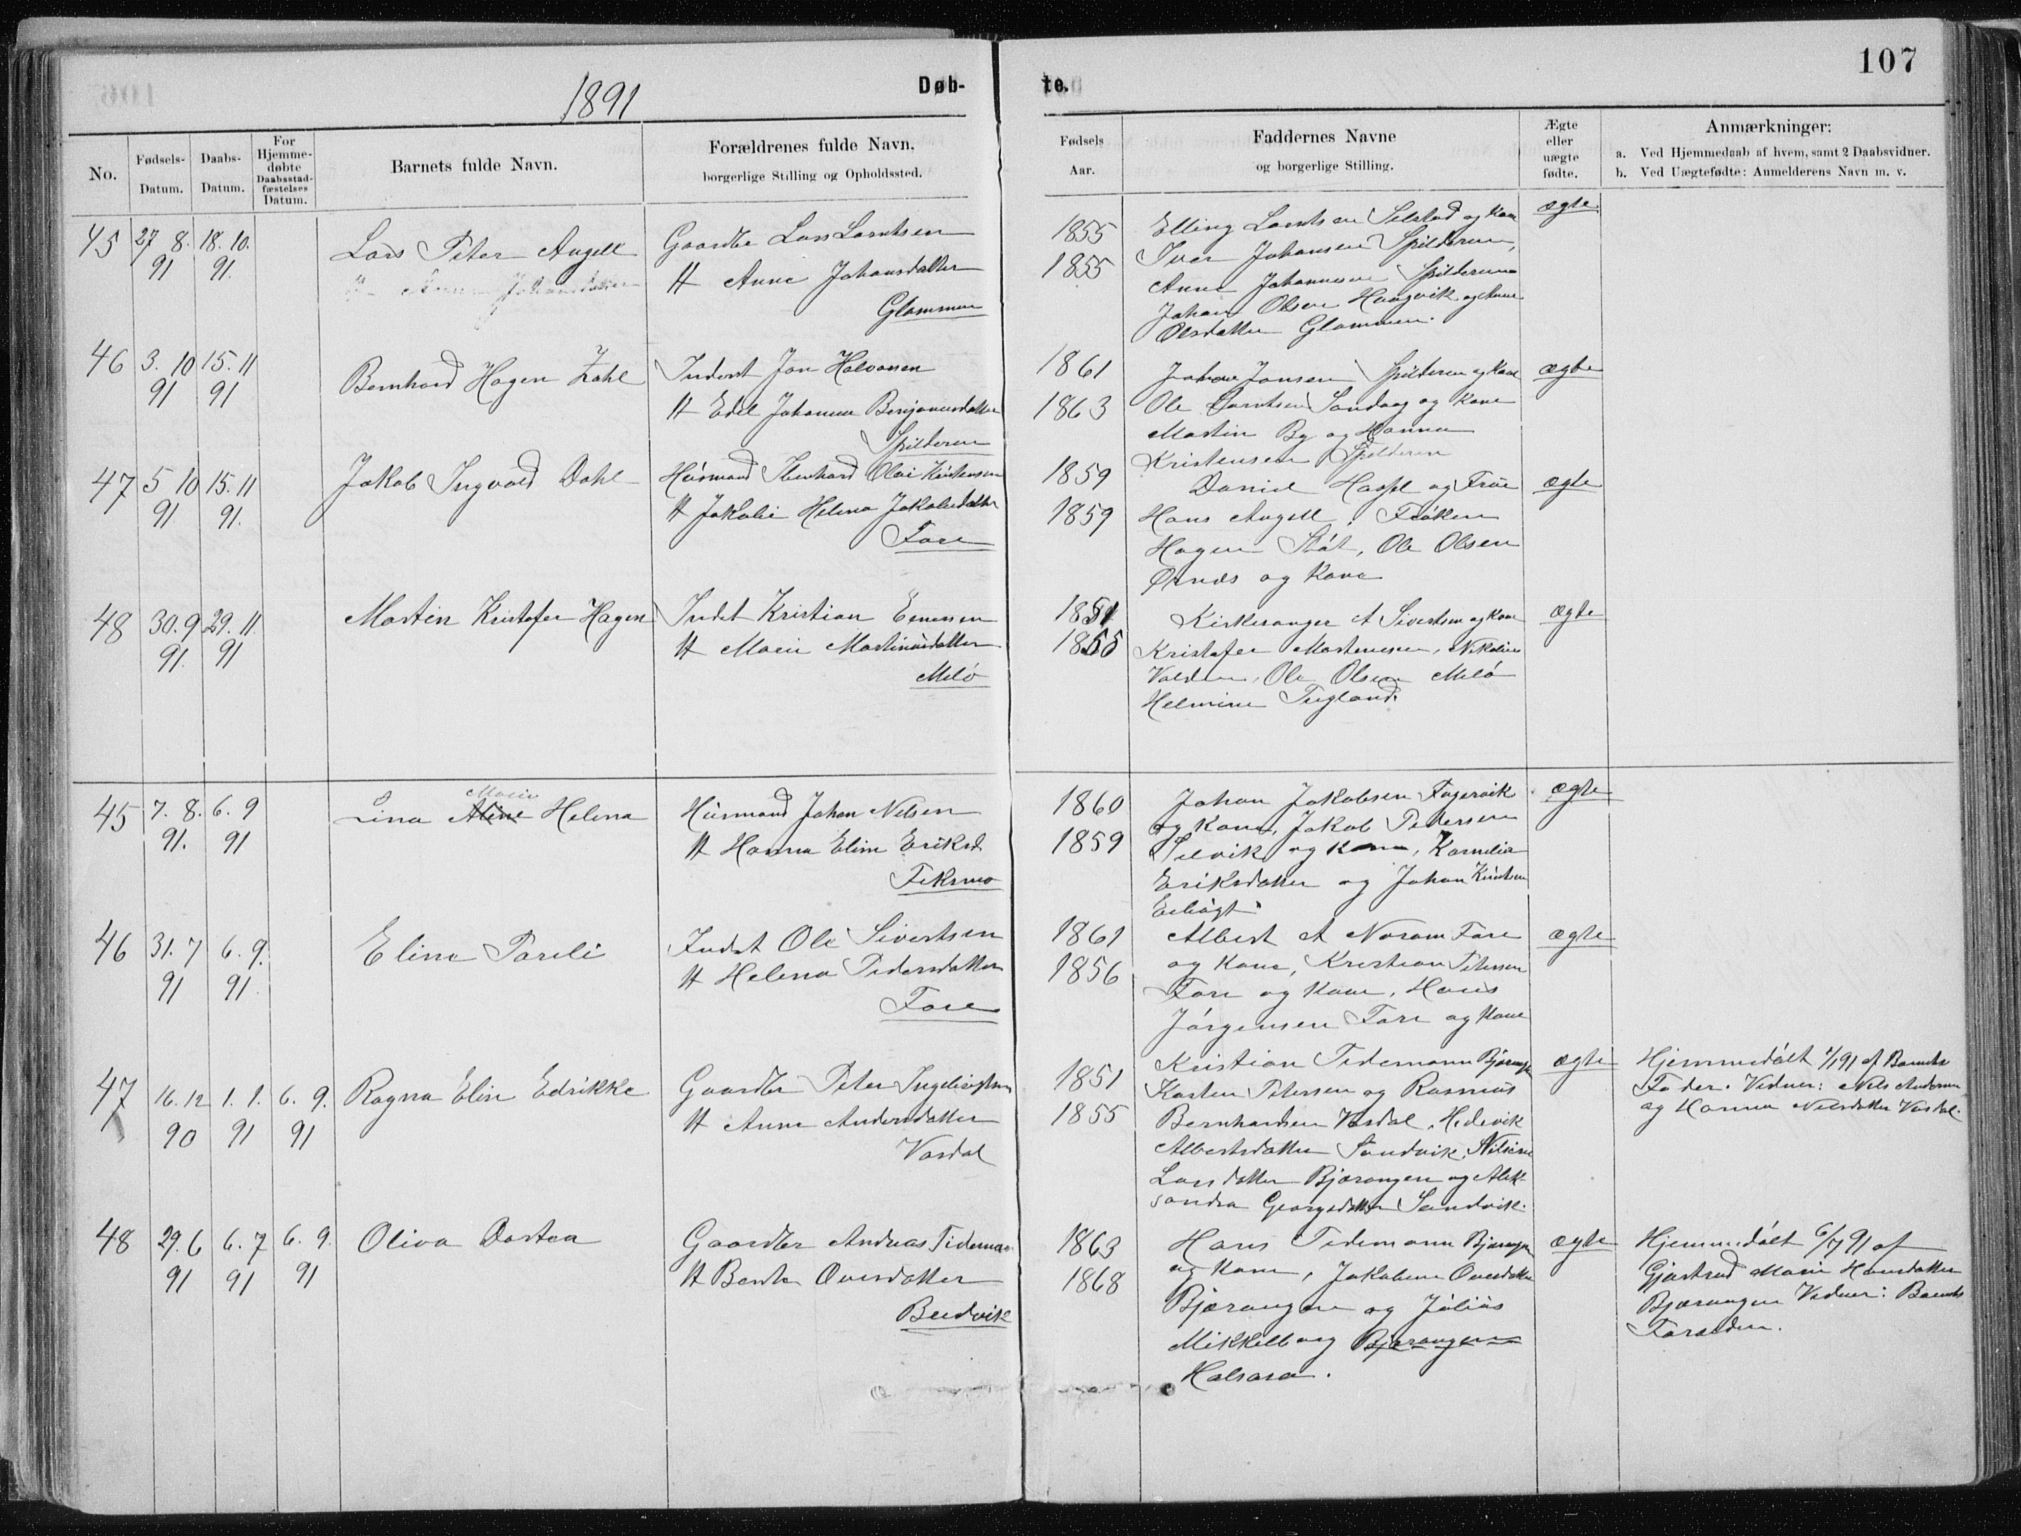 107
1891
Døb-
te.
No.
Fødsels-
Datum.
Daabs-
Datum.
For
Hjemme-
døbte
Daabsstad-
fæstelses
Datum.
Barnets fulde Navn.
Forældrenes fulde Navn,
borgerlige Stilling og Opholdssted.
Fødsels
Aar.
Faddernes Navne
og borgerlige Stilling.
Ægte
eller
uægte
fødte.
Anmærkninger:
a. Ved Hjemmedaab af hvem, samt 2 Daabsvidner.
b. Ved Uægtefødte: Anmelderens Navn m. v.
45
27 8.
91
18. 10.
91.
Lars Peter Angell
Gaardbr Lars Larntsen
H Anne Johansdatter
Glommen
1855
1855
Elling Larntsen Selstad og Kone
Iver Johansen Spilderen,
Anne Johannesen Spilderen
Johan Olsen Haugvik og Anne
Olsdatter Glommen.
ægte
46
3. 10
91
15. 11
91
Bernhard Hagen Zahl
Inderst Jon Halvorsen
H Edel Johanna Benjaminsdatter
Spilderen
1861
1863
Johan Jonsen Spilderen og Kone
Ole Larntsen Sandaag og Kone
Martin By og Hanna
Kristensen Spilderen
ægte
47
5 10
91
15. 11
91.
Jakob Ingvald Dahl
Husmand Ibenhard Olai Kristensen
H Jakobie Helena Jakobsdatter
Fore
1859
1859
Daniel Hassel og Frue
Hans Angell, Frøken
Hagen Støt, Ole Olsen
Ørnæs og Kone
ægte
48
30. 9
91.
29. 11.
91
Martin Kristofer Hagen
Indst Kristian Enessen
H Marie Martinusdatter
Melø
1851
1855
Kirkesanger A Sivertsen og Kone
Kristofer Martinussen, Nikoline
Valden, Ole Olsen Melø
Helmine Tugland
ægte
45
7. 8.
91.
6. 9
91
Marie
Lina Aline Helena
Husmand Johan Nilsen
H Hanna Elin Eriksd.
Fiksmo
1860
1859
Johan Jakobsen Fagervik
og Kone, Jakob Pedersen
Selvik og Kone, Kornelia
Eriksdatter og Johan Knutsen
ægte
46
31. 7
91
6. 9.
91.
Eline Pareli
Indst Ole Sivertsen
H Helena Pedersdatter
Fore
1861
1856
Albert A Norum Fore
og Kone, Kristian Petersen
Fore og Kone, Hans
Jørgensen Fore og Kone
ægte
47
16. 12
90
1. 1.
91
6. 9.
91
Ragna Elin Edrikke
Gaardbr Peter Ingebrigtsen
H Anne Andersdatter
Vasdal
1851
1855
Kristian Tidemann Bjærangen
Karsten Petersen og Rasmus
Bernhardsen Vasdal, Hedevik
Albertsdatter Sandvik, Nilsine
Larsdatter Bjærangen og Alek-
sandra Georgsdatter Sandvik.
ægte
Hjemmedøbt 1/1 91 af Barnets
Fader. Vidner: Nils Andersen
og Hanna Nilsdatter Vasdal.
48
29. 6
91
6. 7
91
6. 9.
91
Oliva Dortea
Gaardbr Andreas Tideman
H Bente Oversdatter
Budvik
1863
1868
Hans Tidemann Bjærangen
og Kone, Jakobine Oversdatter
Bjærangen og Julius
Mikkelborg Bjærangen
Halsaro.
ægte
Hjemmedøbt 6/7 91 af
Gjertrud Marie Hansdatter
Bjærangen Vidner: Barnets
Forældre.